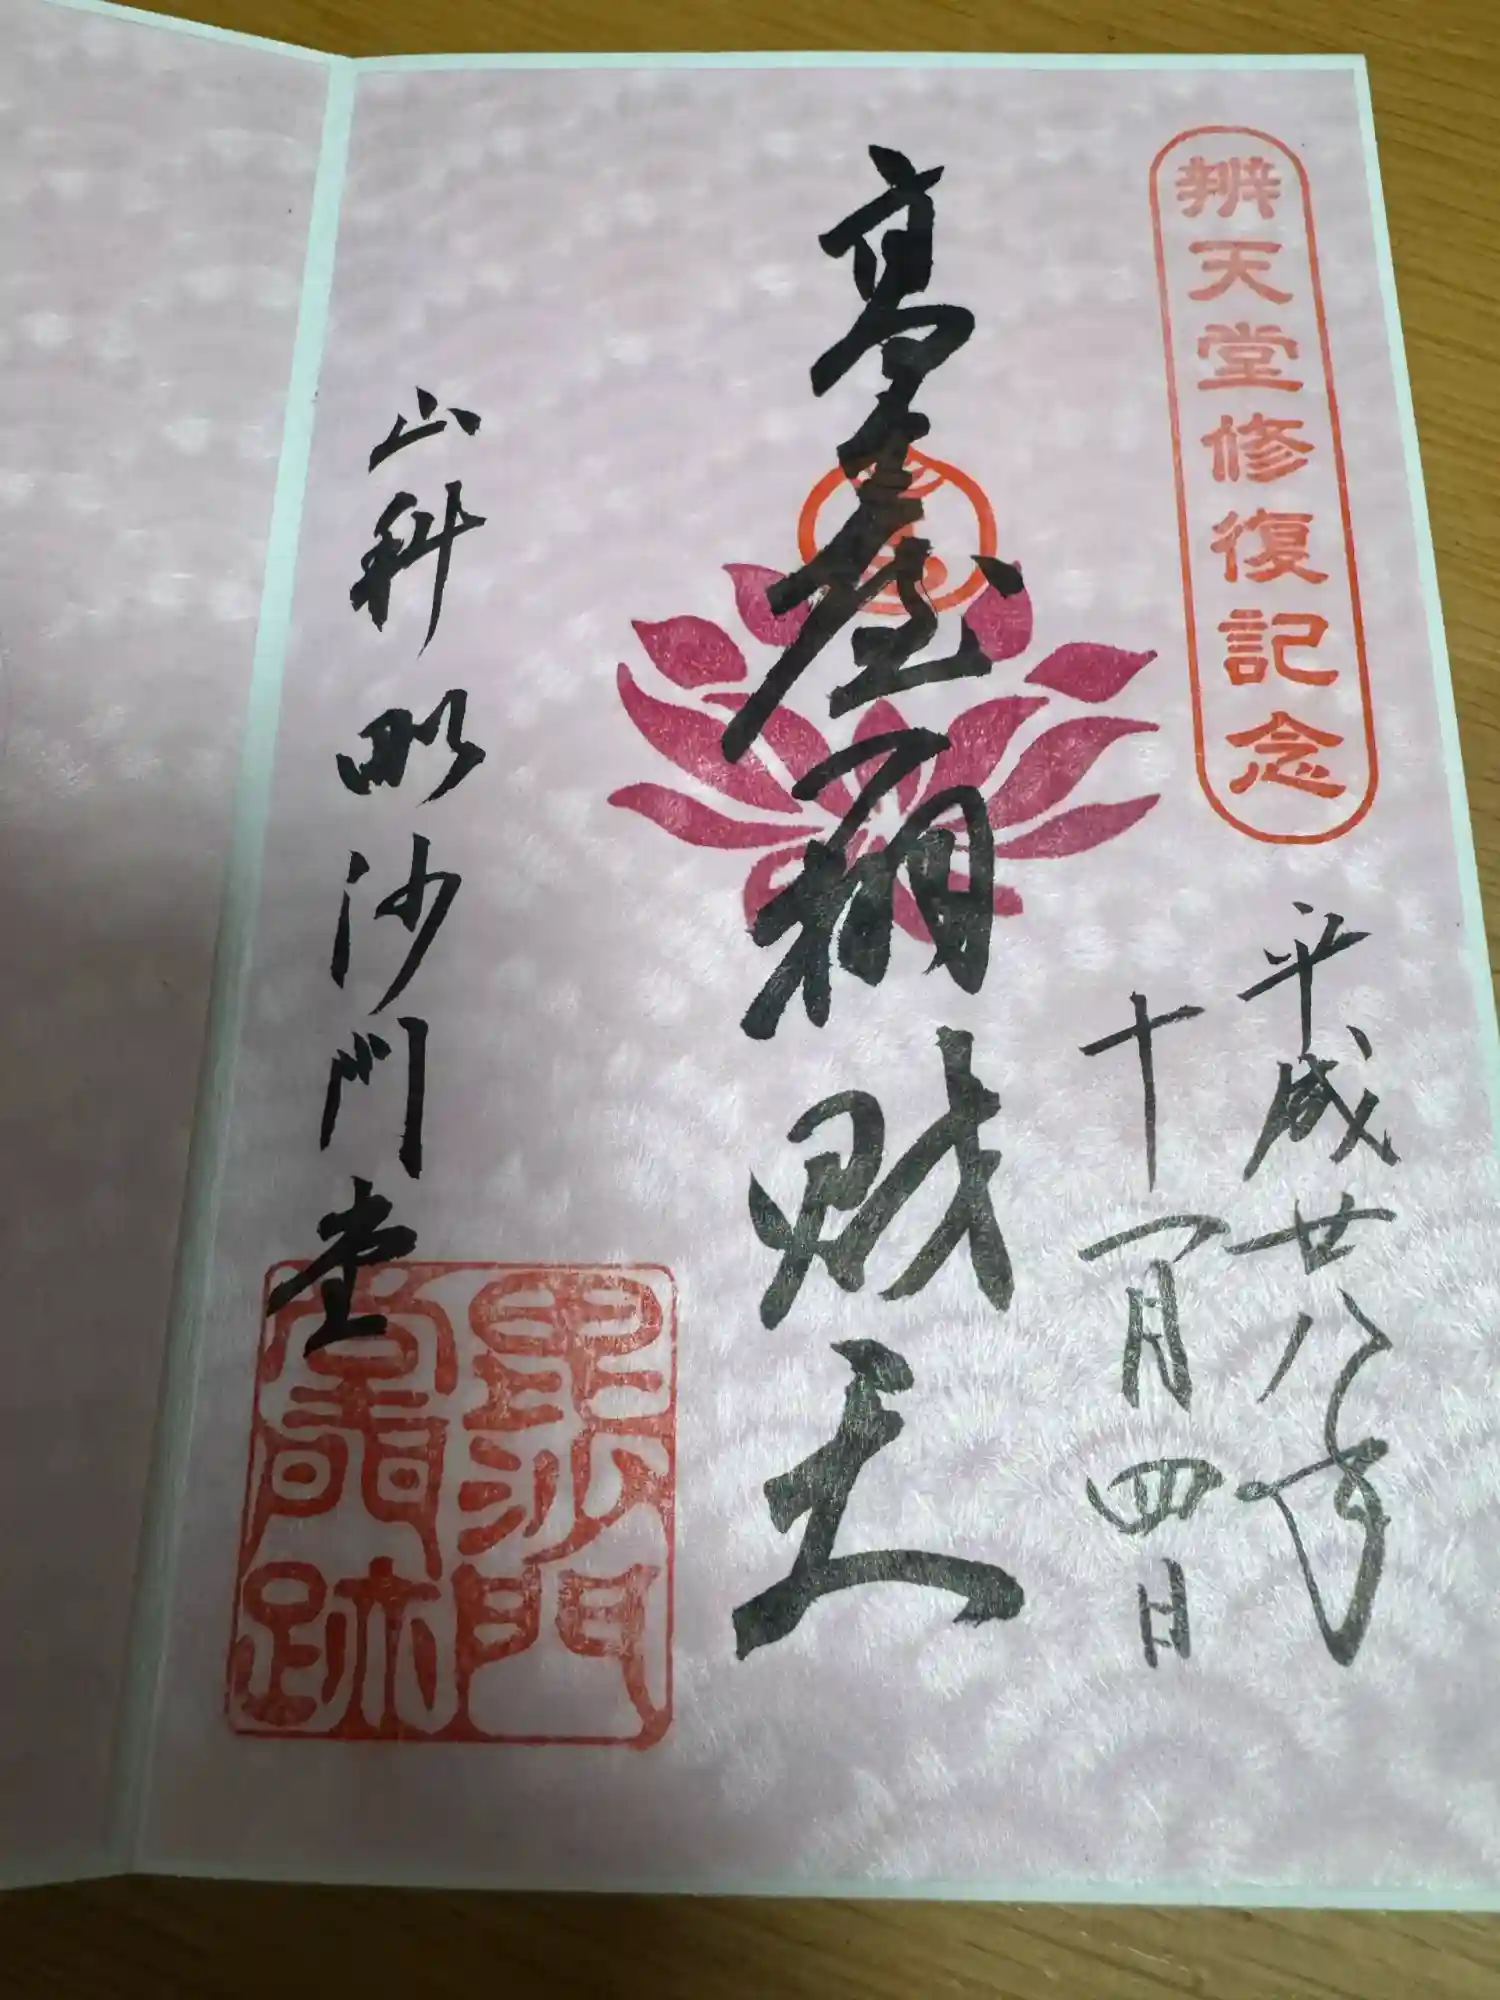 辨天堂修復記念
平成廿八年
十一月四日
高臺辨財天
山科毗沙門堂
毗沙門
堂門跡